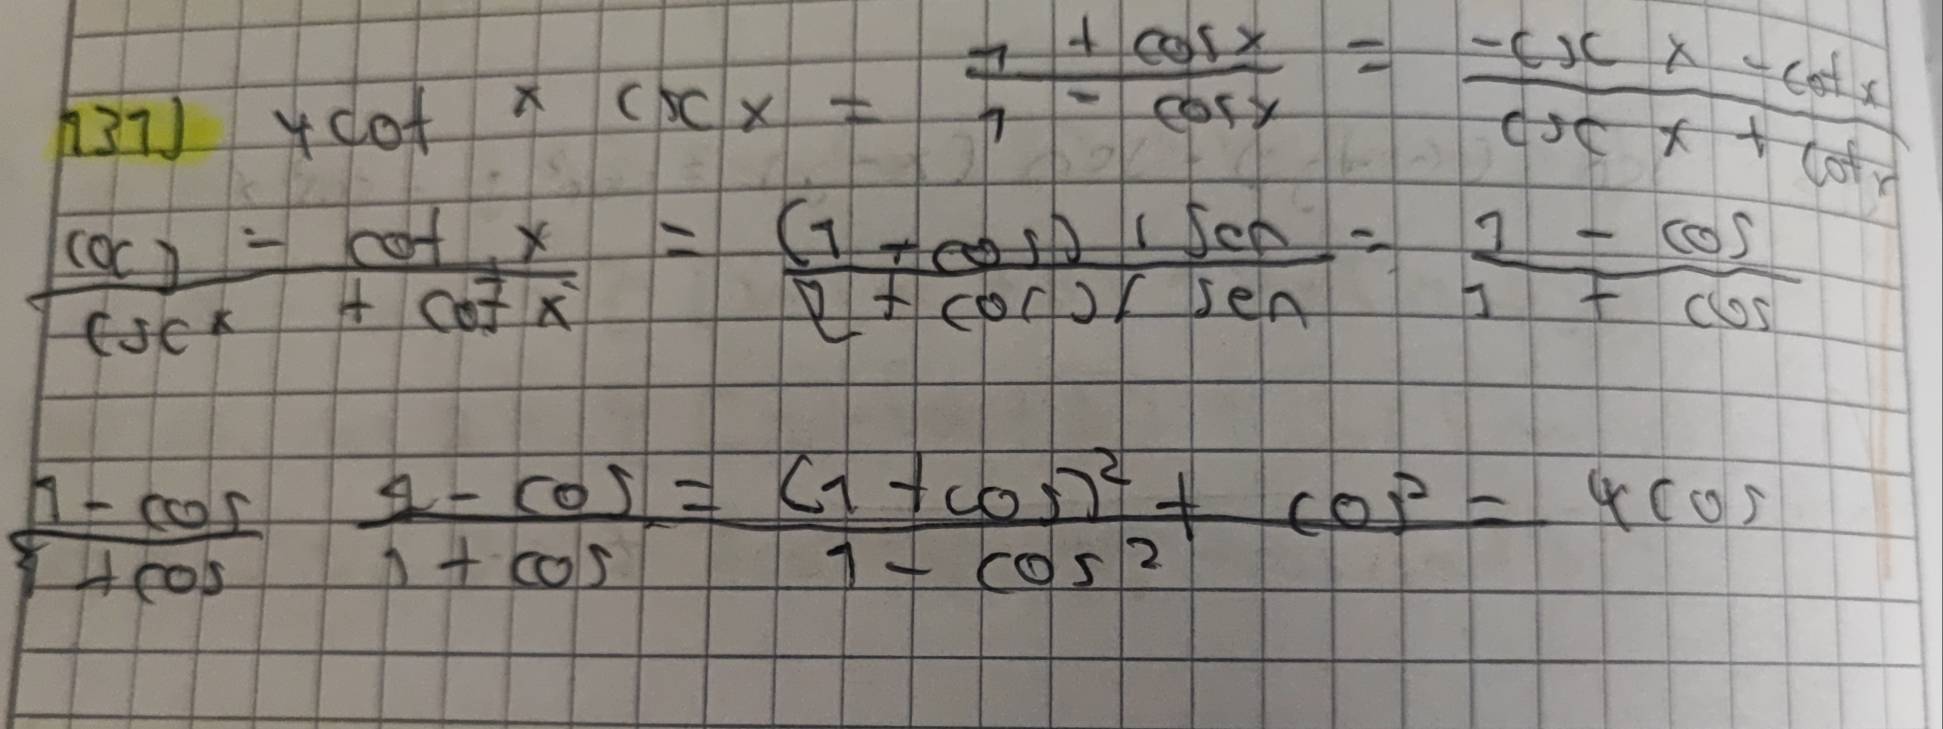 131) 4 cot x csc x = 1 + cos x / 1 - cos x = - csc x - cot x / csc x + cot x
csc - cot x / csc x + cot x = (1 - cos) / sen / (1 + cos) / sen = 1 - cos / 1 + cos
1 - cos / 1 + cos 1 - cos / 1 + cos = (1 + cos)² + cos² / 1 - cos² = 4 cos